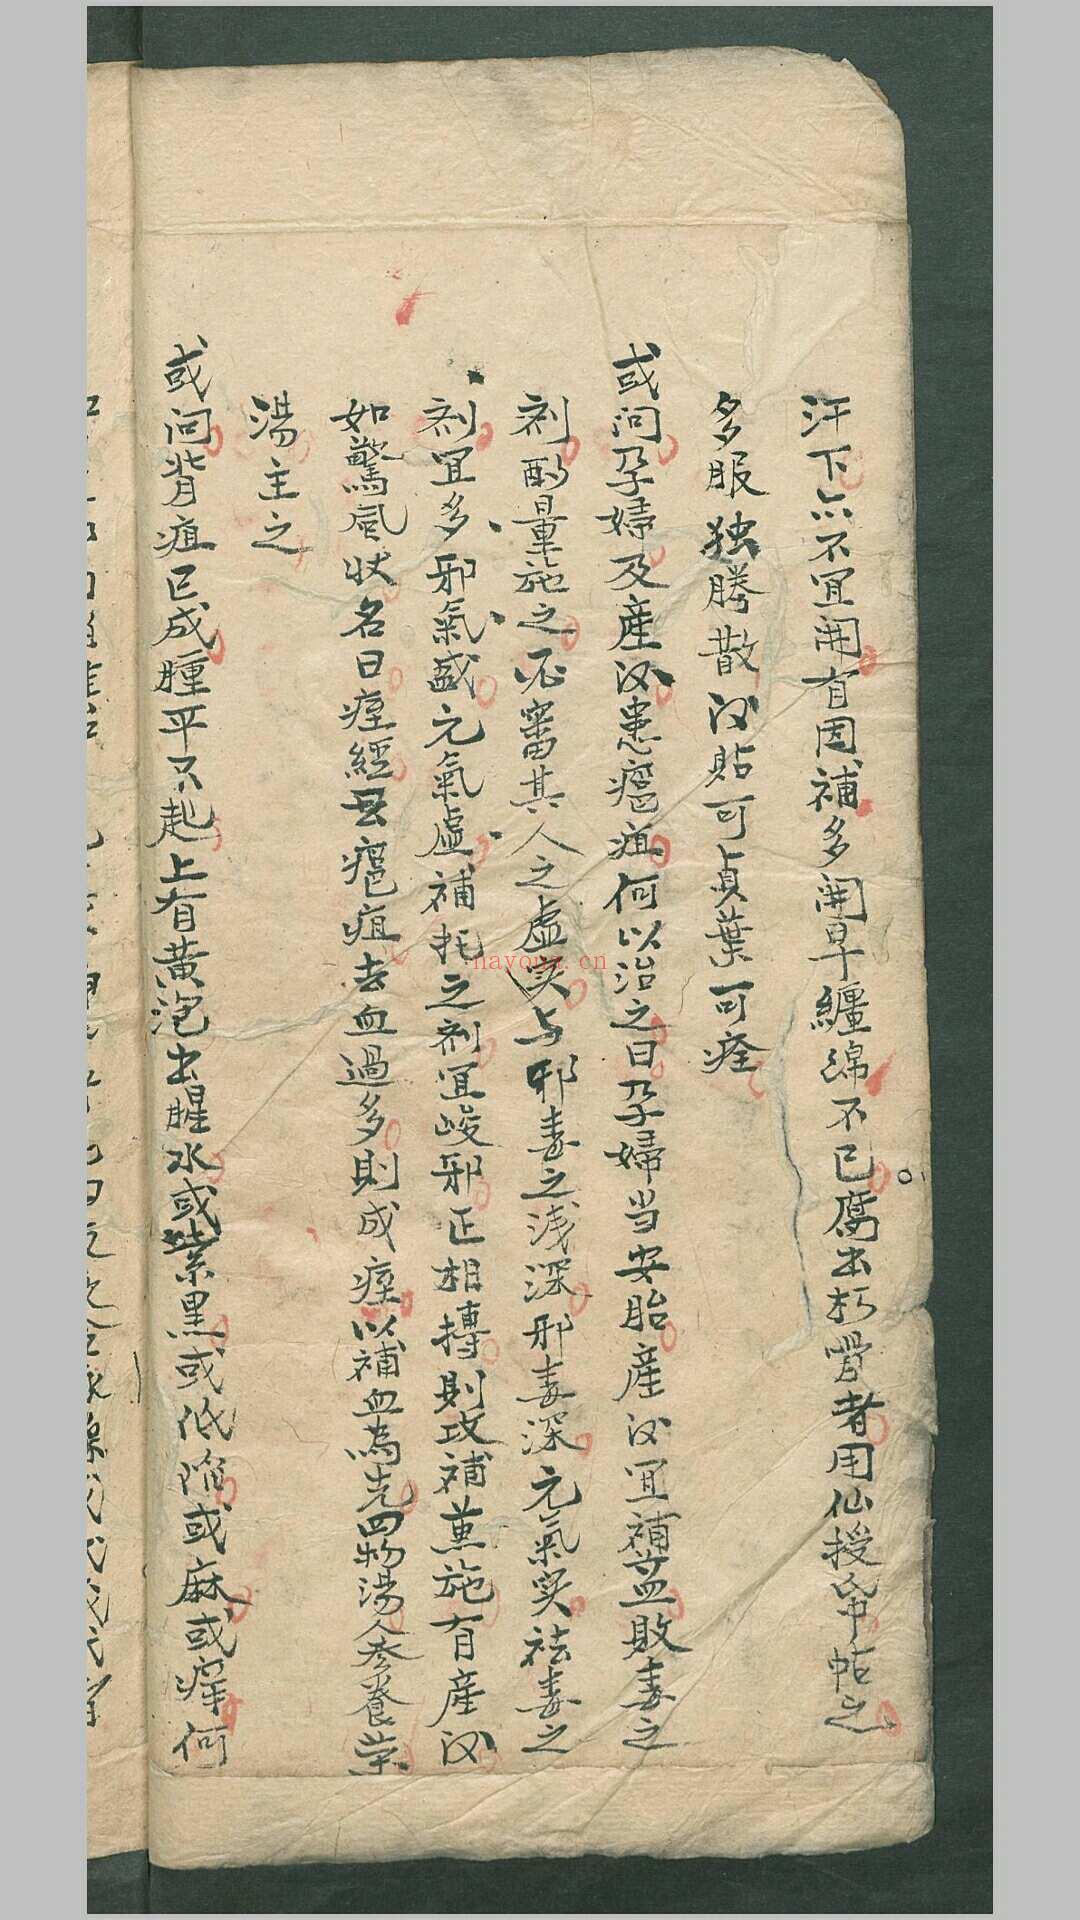 汗下亦不宜開有因補多開早纏綿不已腐出朽骨者用仙授命帖之
多服独勝散後貼可貞葉可痊
或问孕婦及産後患癰疽何以治之曰孕婦当安胎産後宜補益敗毒之
剂酌量施之必審其人之虚实与邪毒之浅深邪毒深元氣实祛毒之
剂宜多邪氣盛元氣虚補托之剂宜峻邪正相摶則攻補蒸施有産後
如驚風状名曰痙經云瘡疽去血過多則成痙以補血為先四物湯人参養荣
湯主之
或问背疽已成腫平不起上有黄泡出腥水或紫黑或低陷或麻或痒何
nayoua.cn